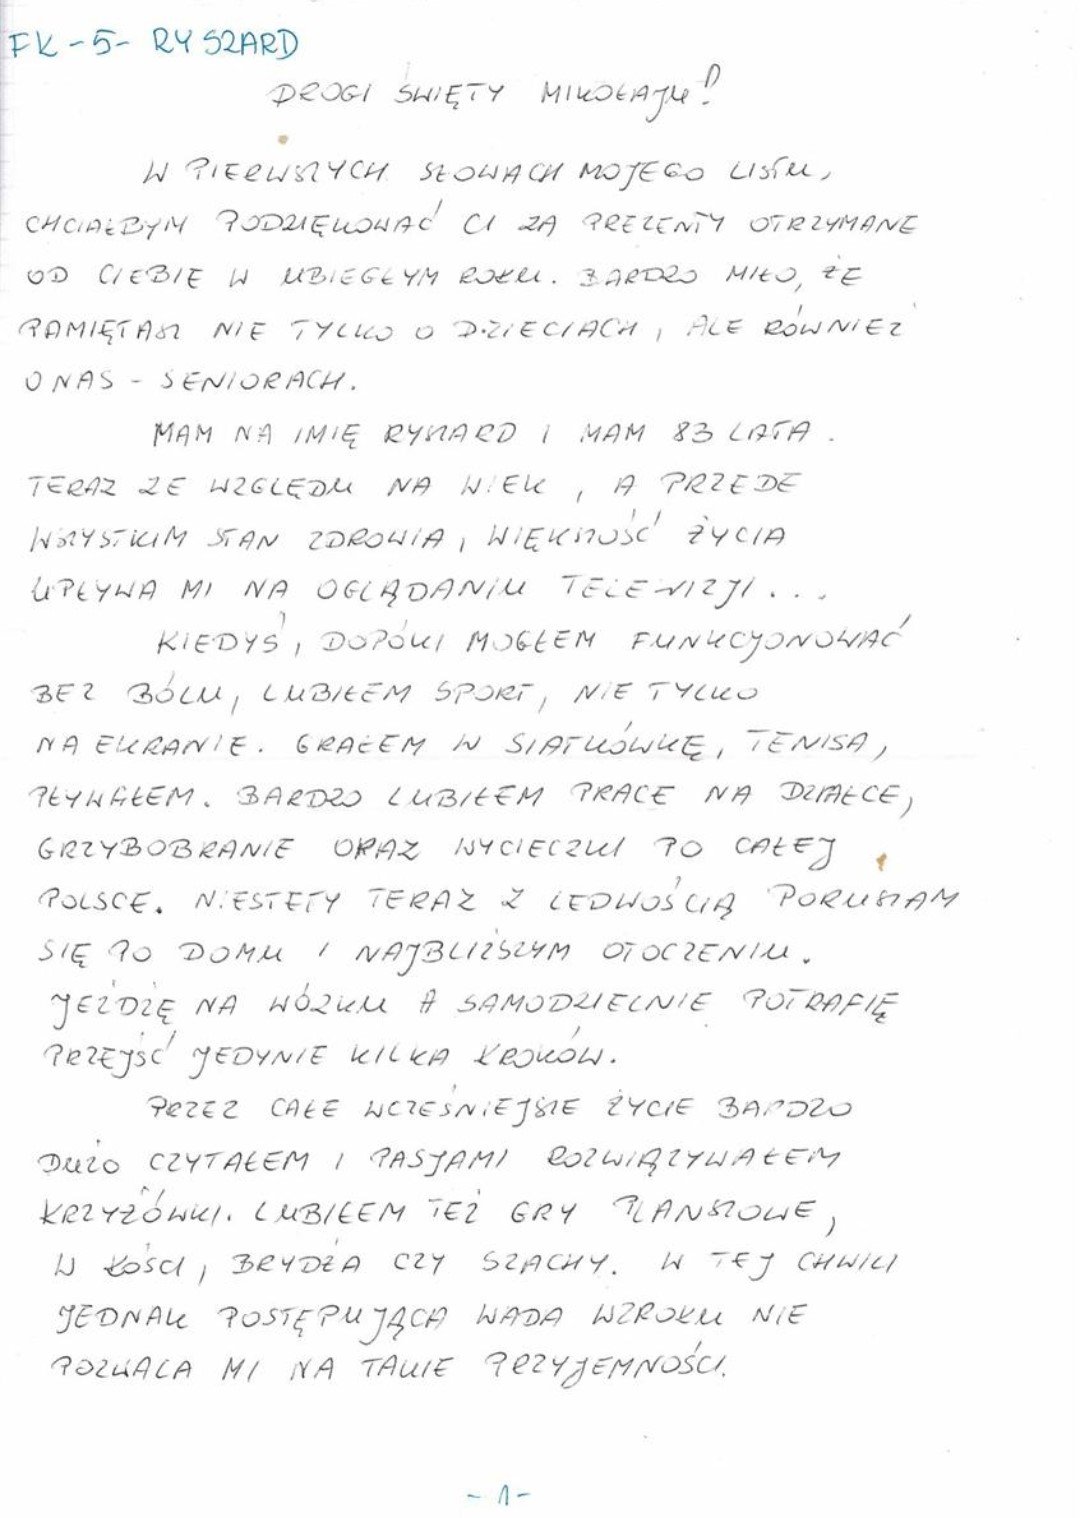 FK-5-RYSZARD
DROGI ŚWIĘTY MIKOŁAJU!
W PIERWSZYCH SŁOWACH MOJEGO LISTU,
CHCIAŁBYM PODZIĘKOWAĆ CI ZA PREZENTY OTRZYMANE
OD CIEBIE W UBIEGŁYM ROKU. BARDZO MIŁO, ŻE
PAMIĘTASZ NIE TYLKO O DZIECIACH, ALE RÓWNIEŻ
O NAS - SENIORACH.
MAM NA IMIĘ RYSZARD I MAM 83 LATA.
TERAZ ZE WZGLĘDU NA WIEK, A PRZEDE
WSZYSTKIM STAN ZDROWIA, WIĘKSZOŚĆ ŻYCIA
UPŁYWA MI NA OGLĄDANIU TELEWIZJI...
KIEDYŚ, DOPÓKI MOGŁEM FUNKCJONOWAĆ
BEZ BÓLU, LUBIŁEM SPORT, NIE TYLKO
NA EKRANIE. GRAŁEM W SIATKÓWKĘ, TENISA,
PŁYWAŁEM. BARDZO LUBIŁEM PRACE NA DZIAŁCE,
GRZYBOBRANIE ORAZ WYCIECZKI PO CAŁEJ
POLSCE. NIESTETY TERAZ Z LEDWOŚCIĄ PORUSZAM
SIĘ PO DOMU I NAJBLIŻSZYM OTOCZENIU.
JEŻDŻĘ NA WÓZKU A SAMODZIELNIE POTRAFIĘ
PRZEJŚĆ JEDYNIE KILKA KROKÓW.
PRZEZ CAŁE WCZEŚNIEJSZE ŻYCIE BARDZO
DUŻO CZYTAŁEM I PASJAMI ROZWIĄZYWAŁEM
KRZYŻÓWKI. LUBIŁEM TEŻ GRY PLANSZOWE,
W KOŚCI, BRYDŻA CZY SZACHY. W TEJ CHWILI
JEDNAK POSTĘPUJĄCA WADA WZROKU NIE
POZWALA MI NA TAKIE PRZYJEMNOŚCI.
-1-